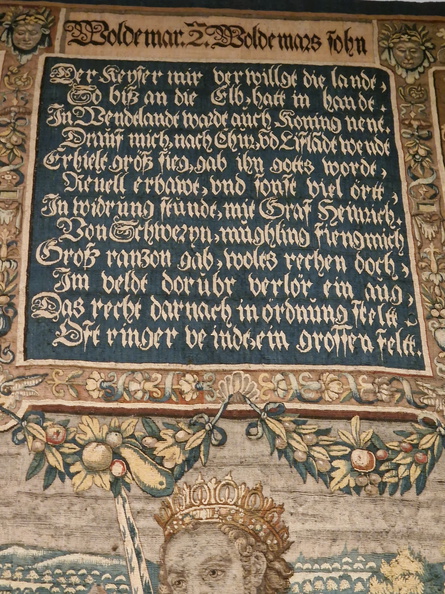 Woldemar. 2. Woldemars sohn
Der Keyser mir verwillgt die landt,
So biß an die Elb, hatt in handt.
In Wendelandt wardt auch Koning nent.
Drauf mich, nach Chur, vd Lifládt wendt
Erhielt groß sieg, gab ihn gotts wordt,
Revell erbawt, vnd sonst viel ortt,
In widrung stunde, mit Graf Heinrich,
Von Schweryn, mäughling fieng mich
Groß ranzon gab, wolts rechen doch,
Im veldt dorubr verlór ein aug,
Das recht darnach in ordnung stelt,
Oft ringer veindt, ein grossen felt.